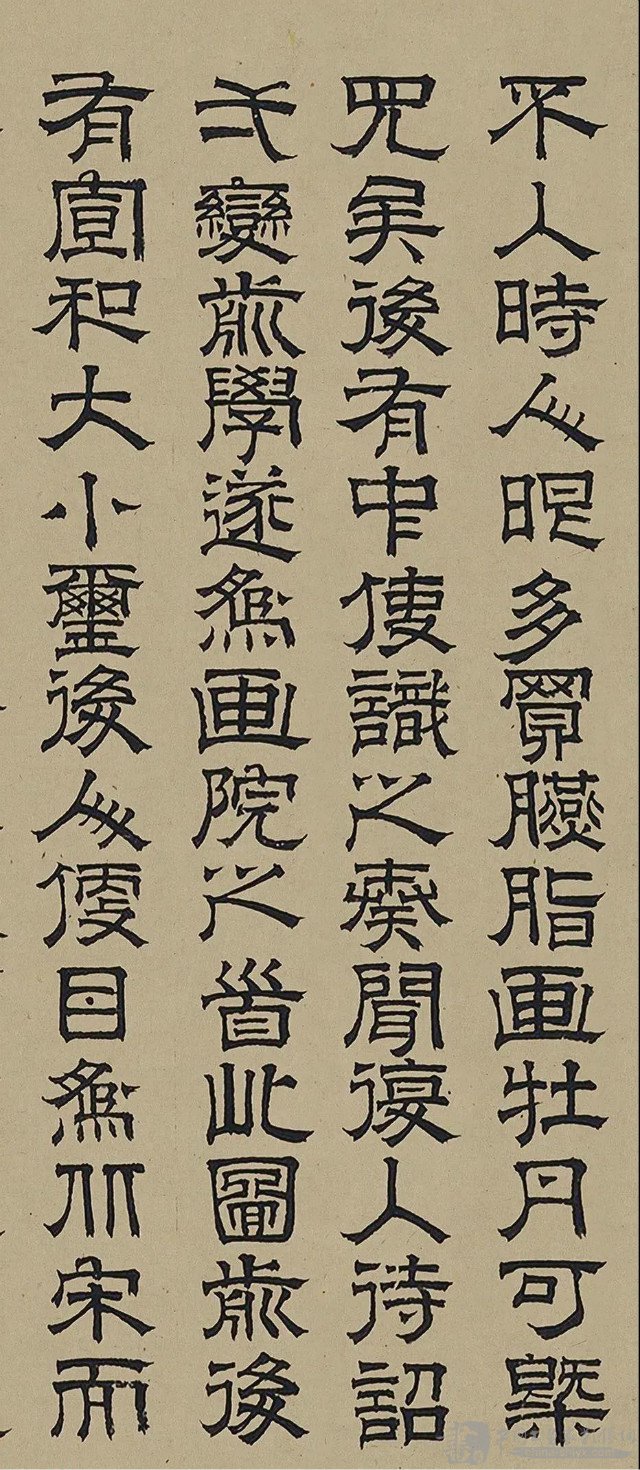 不入時人眼多買臙脂画牡丹可槩
見矣後有中使識之奏聞復入待詔
弌變前學遂為画院之首此圖前後
有宣和大小璽後人便目為北宋而